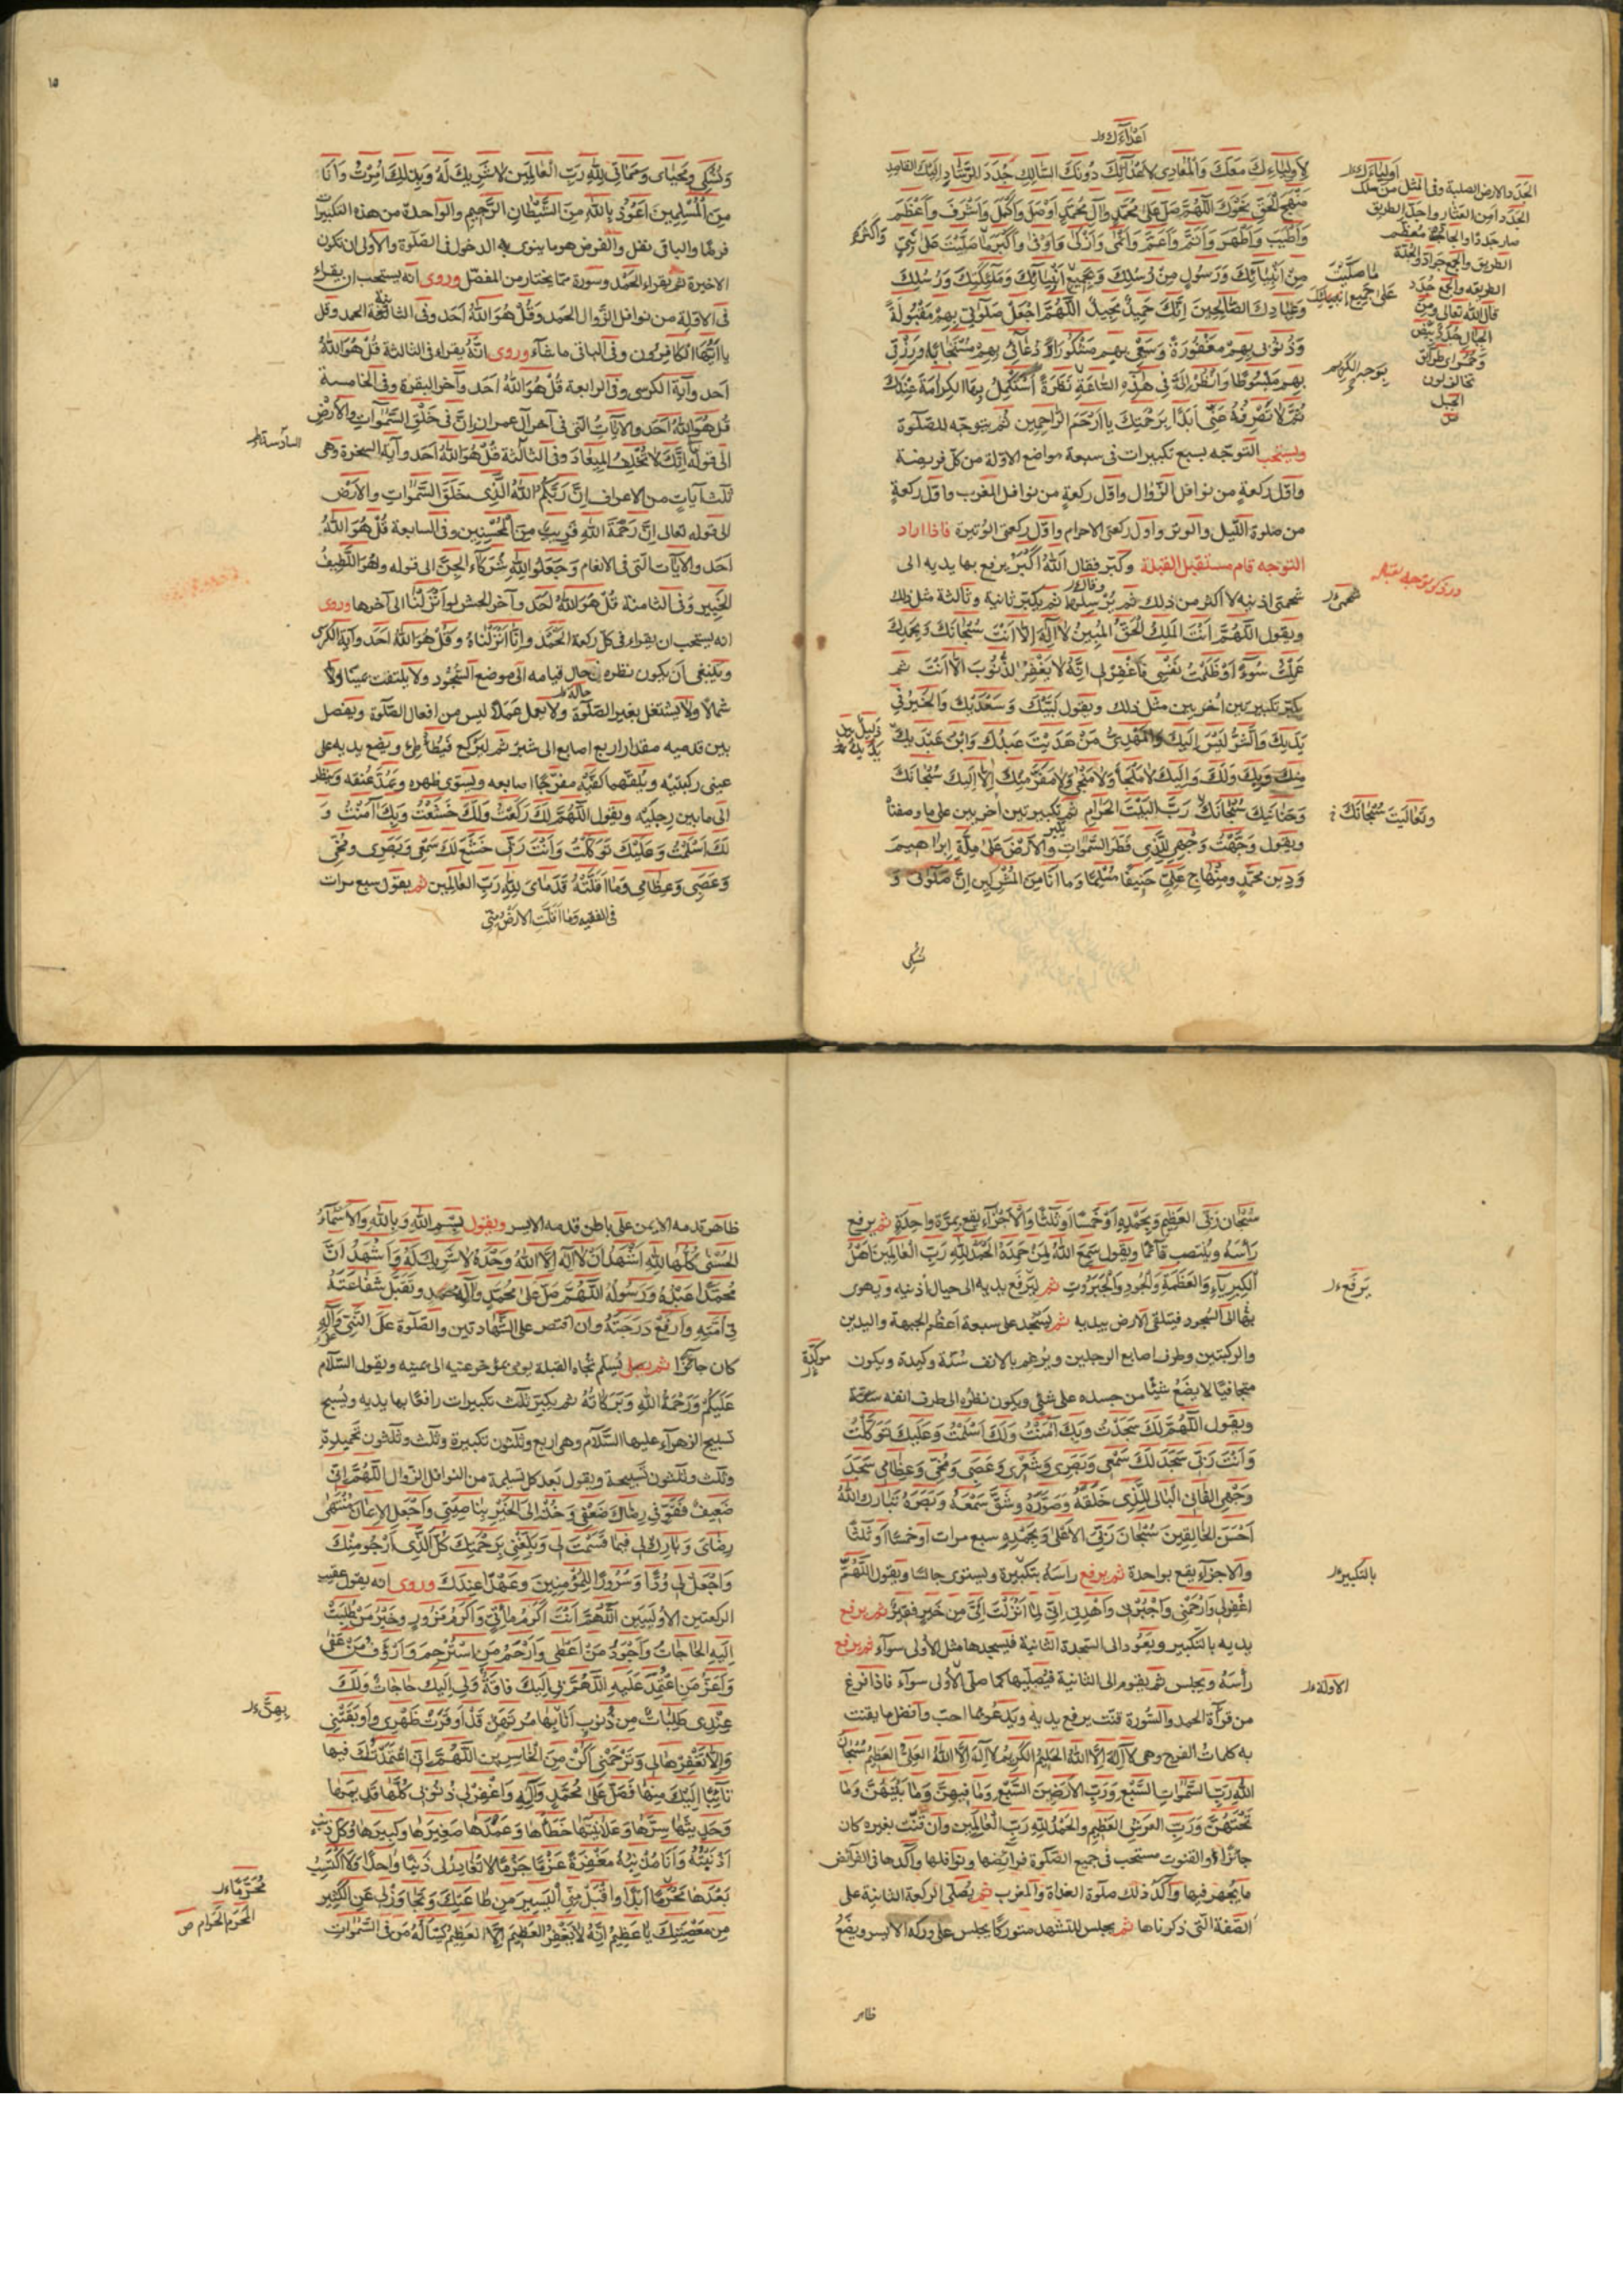 اَعْدَاءَكَ
لِأَوْلِيَاءِكَ مَعَكَ وَالْمُعَادِي لِأَعْدَائِكَ دُونَكَ السَّالِكِ جُدَدَ الرَّشَادِ اِلَيْكَ الْقَاصِدِ
مَنْهَجَ الْحَقِّ نَحْوَكَ اَللّٰهُمَّ صَلِّ عَلٰى مُحَمَّدٍ وَآلِ مُحَمَّدٍ اَوْصَلَ وَاَكْمَلَ وَاَشْرَفَ وَاَعْظَمَ
وَاَطْيَبَ وَاَطْهَرَ وَاَتَمَّ وَاَعَمَّ وَاَنْمٰى وَاَزْكٰى وَاَوْفٰى وَاَكْبَرَ مَا صَلَّيْتَ عَلٰى نَبِيٍّ
مِنْ اَنْبِيَائِكَ وَرَسُولٍ مِنْ رُسُلِكَ وَبِجَمِيعِ اَنْبِيَائِكَ وَمَلٰئِكَتِكَ وَرُسُلِكَ
وَعِبَادِكَ الصَّالِحِينَ اِنَّكَ حَمِيدٌ مَجِيدٌ اَللّٰهُمَّ اجْعَلْ صَلَوٰتِي بِهِمْ مَقْبُولَةً
وَذُنُوبِي بِهِمْ مَغْفُورَةً وَسَعْيِي بِهِمْ مَشْكُورًا وَدُعَائِي بِهِمْ مُسْتَجَابًا وَرِزْقِي
بِهِمْ مَبْسُوطًا وَانْظُرْ اِلَيَّ فِي هٰذِهِ السَّاعَةِ نَظْرَةً اَسْتَكْمِلُ بِهَا الْكَرَامَةَ عِنْدَكَ
ثُمَّ لَا تَصْرِفْهُ عَنِّي اَبَدًا بِرَحْمَتِكَ يَا اَرْحَمَ الرَّاحِمِينَ ثم يتوجّه للصّلوة
ويستحب التوجّه بسبع تكبيرات في سبعة مواضع الاوّلة من كل فريضة
واوّل ركعةٍ من نوافل الزّوال واوّل ركعةٍ من نوافل المغرب واوّل ركعةٍ
من صلوة اللّيل والوتر واول ركعتى الاحرام واوّل ركعتى الوُتيرة فاذا اراد
التوجه قام مستقبل القبلة وكبّر فقال اَللّٰهُ اَكْبَرُ يرفع بها يديه الى
شحمتى اذنيه لا اكثر من ذلك ثم يُرْسِلُهَا ثم يكبّر ثانية وثالثة مثل ذلك
ويقول اَللّٰهُمَّ اَنْتَ الْمَلِكُ الْحَقُّ الْمُبِينُ لَا اِلٰهَ اِلَّا اَنْتَ سُبْحَانَكَ وَبِحَمْدِكَ
عَمِلْتُ سُوءًا وَظَلَمْتُ نَفْسِي فَاغْفِرْ لِي اِنَّهُ لَا يَغْفِرُ الذُّنُوبَ اِلَّا اَنْتَ ثم
يكبّر تكبيرتين اُخريين مثل ذلك ويقول لَبَّيْكَ وَسَعْدَيْكَ وَالْخَيْرُ فِي
يَدَيْكَ وَالشَّرُّ لَيْسَ اِلَيْكَ وَالْمَهْدِيُّ مَنْ هَدَيْتَ عَبْدُكَ وَابْنُ عَبْدَيْكَ
مِنْكَ وَبِكَ وَلَكَ وَاِلَيْكَ لَا مَلْجَأَ وَلَا مَنْجٰى وَلَا مَفَرَّ مِنْكَ اِلَّا اِلَيْكَ سُبْحَانَكَ
وَحَنَانَيْكَ سُبْحَانَكَ رَبَّ الْبَيْتِ الْحَرَامِ ثم تكبيرتين اُخريين على ما وصفناه
ويقول وَجَّهْتُ وَجْهِيَ لِلَّذِي فَطَرَ السَّمٰوَاتِ وَالْاَرْضَ عَلٰى مِلَّةِ اِبْرَاهِيمَ
وَدِينِ مُحَمَّدٍ وَمِنْهَاجِ عَلِيٍّ حَنِيفًا مُسْلِمًا وَمَا اَنَا مِنَ الْمُشْرِكِينَ اِنَّ صَلَوتِي وَ
نُسُكِي
اَوْلِيَاءَكَ
الجَدَد الارض الصلبة وفى المثل من سلك
الجَدَد امن العثار واجدّ الطريق
صار جددًا والجادّة مُعظم
الطريق والجمع جوادّ والجُدّة
الطريقة والجمع جُدَد
قال الله تعالى ومن
الجبال جُدَدٌ بيض
وحُمر اى طرائق
تخالف لون
الجبل
وَاَكْثَرَ
مَا صَلَّيْتَ
عَلٰى جَمِيعِ اَنْبِيَائِكَ
بِوَجْهِكَ الْكَرِيمِ
در ذكر توجه بقبله
شحمتى
ذَلِيلٌ بَيْنَ
يَدَيْكَ
وَتَعَالَيْتَ سُبْحَانَكَ
١٥
وَنُسُكِي وَمَحْيَايَ وَمَمَاتِي لِلّٰهِ رَبِّ الْعَالَمِينَ لَا شَرِيكَ لَهُ وَبِذٰلِكَ اُمِرْتُ وَاَنَا
مِنَ الْمُسْلِمِينَ اَعُوذُ بِاللّٰهِ مِنَ الشَّيْطَانِ الرَّجِيمِ والواحدة من هذه التكبيرات
فرض والباقى نفل والفرض هو ما ينوى به الدخول فى الصّلوة والأولى ان تكون
الاخيرة ثم يقراء الحمد وسورة ممّا يختار من المفصّل وروى انه يستحب ان يقراء
فى الاوّلة من نوافل الزّوال الحمد وَقُلْ هُوَ اللّٰهُ اَحَد وفى الثانية الحمد وقل
يَا اَيُّهَا الْكَافِرُون وفى الباقى ما شاء وروى انّه يقراء فى الثالثة قُلْ هُوَ اللّٰهُ
اَحَد وآية الكرسى وفى الرابعة قُلْ هُوَ اللّٰهُ اَحَد وآخر البقرة وفى الخامسة
قُلْ هُوَ اللّٰهُ اَحَد والآيات الّتى فى آخر آل عمران اِنَّ فِي خَلْقِ السَّمٰوَاتِ وَالْاَرْضِ
الى قوله اِنَّكَ لَا تُخْلِفُ الْمِيعَاد وفى الثالثة قُلْ هُوَ اللّٰهُ اَحَد وآية السخرة وهى
ثلث آياتٍ من الاعراف اِنَّ رَبَّكُمُ اللّٰهُ الَّذِي خَلَقَ السَّمٰوَاتِ وَالْاَرْضَ
الى قوله تعالى اِنَّ رَحْمَةَ اللّٰهِ قَرِيبٌ مِنَ الْمُحْسِنِينَ وفى السابعة قُلْ هُوَ اللّٰهُ
اَحَد والآيات الّتى فى الانعام وَجَعَلُوا لِلّٰهِ شُرَكَاءَ الْجِنَّ الى قوله وَهُوَ اللَّطِيفُ
الْخَبِير وفى الثامنة قُلْ هُوَ اللّٰهُ اَحَد وآخر الحشر لَوْ اَنْزَلْنَا الى آخرها وروى
انه يستحب ان يقراء فى كل ركعة الحمد وَاِنَّا اَنْزَلْنَاهُ وَقُلْ هُوَ اللّٰهُ اَحَد وآية الكرسى
وينبغى ان يكون نظره فى حال قيامه الى موضع السّجُود ولا يلتفت يمينًا ولا
شمالًا ولا يشتغل بغير الصّلوة ولا يعمل عملًا ليس من افعال الصّلوة ويفصل
بين قدميه مقدار اربع اصابع الى شبر ثم ليركع فيُطأطِئ ويضع يديه على
عينى ركبتيه ويلقمهما كفّيه مفرّجًا اصابعه ويسوّى ظهره ويمدّ عنقه وينظر
الى ما بين رجليه ويقول اَللّٰهُمَّ لَكَ رَكَعْتُ وَلَكَ خَشَعْتُ وَبِكَ اٰمَنْتُ وَ
لَكَ اَسْلَمْتُ وَعَلَيْكَ تَوَكَّلْتُ وَاَنْتَ رَبِّي خَشَعَ لَكَ سَمْعِي وَبَصَرِي وَمُخِّي
وَعَصَبِي وَعِظَامِي وَمَا اَقَلَّتْهُ قَدَمَايَ لِلّٰهِ رَبِّ الْعَالَمِينَ ثم يقول سبع مرات
فى الفقيه وَمَا اَقَلَّتِ الْاَرْضُ مِنِّي
السادسة
سُبْحَانَ رَبِّيَ الْعَظِيمِ وَبِحَمْدِهِ اَوْ خَمْسًا اَوْ ثَلَثًا وَالْاِجْزَاءُ يقع بمرّة واحدة ثم يرفع
رَأسَهُ وينتصب قآئمًا ويقول سَمِعَ اللّٰهُ لِمَنْ حَمِدَهُ اَلْحَمْدُ لِلّٰهِ رَبِّ الْعَالَمِينَ اَهْلِ
الْكِبْرِيَاءِ وَالْعَظَمَةِ وَالْجُودِ وَالْجَبَرُوتِ ثم ليرفع يديه الى حيال اُذنيه ويهوى
بهما الى السجود فيتلقى الارض بيديه ثم يسجد على سبعة اَعظُم الجبهة واليدين
والركبتين وطرف اصابع الرجلين ويُرغم بالانف سُنّة وكيدة ويكون
متجافيًا لا يضع شيئًا من جسده على شىء ويكون نظره الى طرف انفه
ويقول اَللّٰهُمَّ لَكَ سَجَدْتُ وَبِكَ اٰمَنْتُ وَلَكَ اَسْلَمْتُ وَعَلَيْكَ تَوَكَّلْتُ
وَاَنْتَ رَبِّي سَجَدَ لَكَ سَمْعِي وَبَصَرِي وَشَعْرِي وَعَصَبِي وَمُخِّي وَعِظَامِي سَجَدَ
وَجْهِيَ الْفَانِي الْبَالِي لِلَّذِي خَلَقَهُ وَصَوَّرَهُ وَشَقَّ سَمْعَهُ وَبَصَرَهُ تَبَارَكَ اللّٰهُ
اَحْسَنُ الْخَالِقِينَ سُبْحَانَ رَبِّيَ الْاَعْلٰى وَبِحَمْدِهِ سبع مرات او خمسًا اَو ثلثًا
والاجزاء يقع بواحدة ثم يرفع راسه بتكبيرة ويستوى جالسًا ويقول اَللّٰهُمَّ
اغْفِرْ لِي وَارْحَمْنِي وَاجْبُرْنِي وَاهْدِنِي اِنِّي لِمَا اَنْزَلْتَ اِلَيَّ مِنْ خَيْرٍ فَقِيرٌ ثم يرفع
يديه بالتكبير ويعود الى السّجدة الثانية فيسجدها مثل الأولى سوآء ثم يرفع
رأسه ويجلس ثم يقوم الى الثانية فيصلّيها كما صلّى الأولى سوآء فاذا فرغ
من قرآءة الحمد والسّورة قنت يرفع يديه ويدعو بما احبّ وافضل ما يقنت
به كلمات الفرج وهى لَا اِلٰهَ اِلَّا اللّٰهُ الْحَلِيمُ الْكَرِيمُ لَا اِلٰهَ اِلَّا اللّٰهُ الْعَلِيُّ الْعَظِيمُ سُبْحَانَ
اللّٰهِ رَبِّ السَّمٰوَاتِ السَّبْعِ وَرَبِّ الْاَرَضِينَ السَّبْعِ وَمَا فِيهِنَّ وَمَا بَيْنَهُنَّ وَمَا
تَحْتَهُنَّ وَرَبِّ الْعَرْشِ الْعَظِيمِ وَالْحَمْدُ لِلّٰهِ رَبِّ الْعَالَمِينَ وان قنت بغيره كان
جائزًا والقنوت مستحب فى جميع الصّلوة فرآئضها ونوافلها وآكدها فى الفرائض
ما يجهر فيها وآكد ذلك صلوة الغداة والمغرب ثم يصلّى الركعة الثانية على
الصّفة الّتى ذكرناها ثم يجلس للتشهد متوركًا يجلس على وركه الايسر ويضع
ظاهر
يَرْفَع
مؤكّدة
بالتكبير
الاولة
ظاهر قدمه الايمن على باطن قدمه الايسر ويقول بِسْمِ اللّٰهِ وَبِاللّٰهِ وَالْاَسْمَاءُ
الْحُسْنٰى كُلُّهَا لِلّٰهِ اَشْهَدُ اَنْ لَا اِلٰهَ اِلَّا اللّٰهُ وَحْدَهُ لَا شَرِيكَ لَهُ وَاَشْهَدُ اَنَّ
مُحَمَّدًا عَبْدُهُ وَرَسُولُهُ اَللّٰهُمَّ صَلِّ عَلٰى مُحَمَّدٍ وَآلِ مُحَمَّدٍ وَتَقَبَّلْ شَفَاعَتَهُ
فِي اُمَّتِهِ وَارْفَعْ دَرَجَتَهُ وان اقتصر على الشّهادتين والصّلوة على النّبى وآله
كان جائزًا ثم يسلّم تجاه القبلة يومى بمؤخر عينه الى يمينه ويقول السَّلَامُ
عَلَيْكُمْ وَرَحْمَةُ اللّٰهِ وَبَرَكَاتُهُ ثم يكبّر ثلث تكبيرات رافعًا بها يديه ويُسبّح
تسبيح الزهرآء عليها السّلام وهى اربع وثلثون تكبيرة وثلث وثلثون تحميدة
وثلث وثلثون تسبيحة ويقول بعد كل تسليمة من النوافل الزوال اَللّٰهُمَّ اِنِّي
ضَعِيفٌ فَقَوِّ فِي رِضَاكَ ضَعْفِي وَخُذْ اِلَى الْخَيْرِ بِنَاصِيَتِي وَاجْعَلِ الْاِيمَانَ مُنْتَهٰى
رِضَايَ وَبَارِكْ لِي فِيمَا قَسَمْتَ لِي وَبَلِّغْنِي بِرَحْمَتِكَ كُلَّ الَّذِي اَرْجُو مِنْكَ
وَاجْعَلْ لِي وُدًّا وَسُرُورًا لِلْمُؤْمِنِينَ وَعَهْدًا عِنْدَكَ وروى انه يقول عقيب
الركعتين الأوليين اَللّٰهُمَّ اَنْتَ اَكْرَمُ مَأْتِيٍّ وَاَكْرَمُ مَزُورٍ وَخَيْرُ مَنْ طُلِبَتْ
اِلَيْهِ الْحَاجَاتُ وَاَجْوَدُ مَنْ اَعْطٰى وَاَرْحَمُ مَنِ اسْتُرْحِمَ وَاَرْأَفُ مَنْ عَفٰى
وَاَعَزُّ مَنِ اعْتُمِدَ عَلَيْهِ اَللّٰهُمَّ بِي اِلَيْكَ فَاقَةٌ وَلِي اِلَيْكَ حَاجَاتٌ وَلَكَ
عِنْدِي طَلِبَاتٌ مِنْ ذُنُوبٍ اَنَا بِهَا مُرْتَهَنٌ قَدْ اَوْقَرَتْ ظَهْرِي وَاَوْبَقَتْنِي
وَاِلَّا تَغْفِرْهَا لِي وَتَرْحَمْنِي اَكُنْ مِنَ الْخَاسِرِينَ اَللّٰهُمَّ اِنِّي اعْتَمَدْتُكَ فِيهَا
تَائِبًا اِلَيْكَ مِنْهَا فَصَلِّ عَلٰى مُحَمَّدٍ وَآلِهِ وَاغْفِرْ لِي ذُنُوبِي كُلَّهَا قَدِيمَهَا
وَحَدِيثَهَا سِرَّهَا وَعَلَانِيَتَهَا خَطَأَهَا وَعَمْدَهَا صَغِيرَهَا وَكَبِيرَهَا وَكُلَّ ذَنْبٍ
اَذْنَبْتُهُ وَاَنَا مُذْنِبُهُ مَغْفِرَةً عَزْمًا جَزْمًا لَا تُغَادِرُ لِي ذَنْبًا وَاحِدًا وَلَا اَكْتَسِبُ
بَعْدَهَا مُحَرَّمًا اَبَدًا وَاقْبَلْ مِنِّي الْيَسِيرَ مِنْ طَاعَتِكَ وَتَجَاوَزْ لِي عَنِ الْكَثِيرِ
مِنْ مَعْصِيَتِكَ يَا عَظِيمُ اِنَّهُ لَا يَغْفِرُ الْعَظِيمَ اِلَّا الْعَظِيمُ يَسْأَلُهُ مَنْ فِي السَّمٰوَاتِ
بِهِنَّ
مُحَرَّمًا
المَحرم الحَرام ص